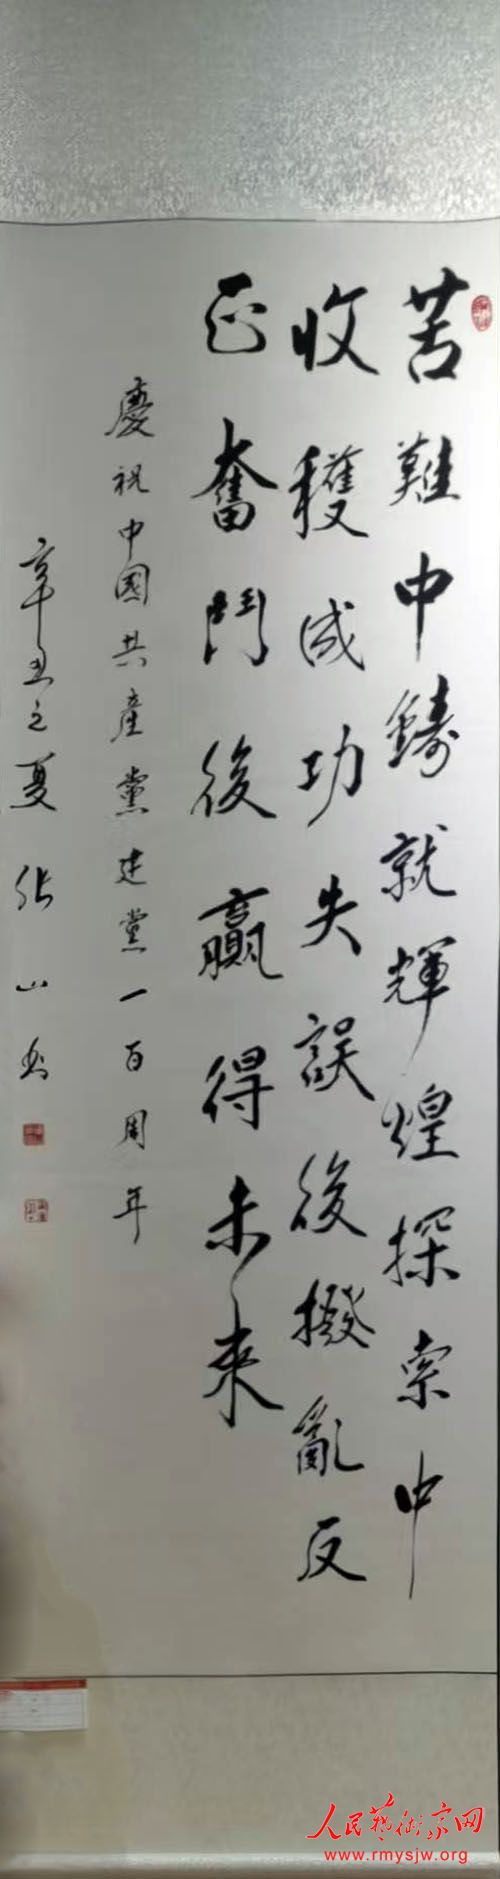 苦難中鑄就輝煌探索中
收穫成功失誤後撥亂反
正奮鬥後贏得未來
慶祝中國共產黨建黨一百周年
辛丑之夏 張山書
人民藝術家网
www.rmysjw.org